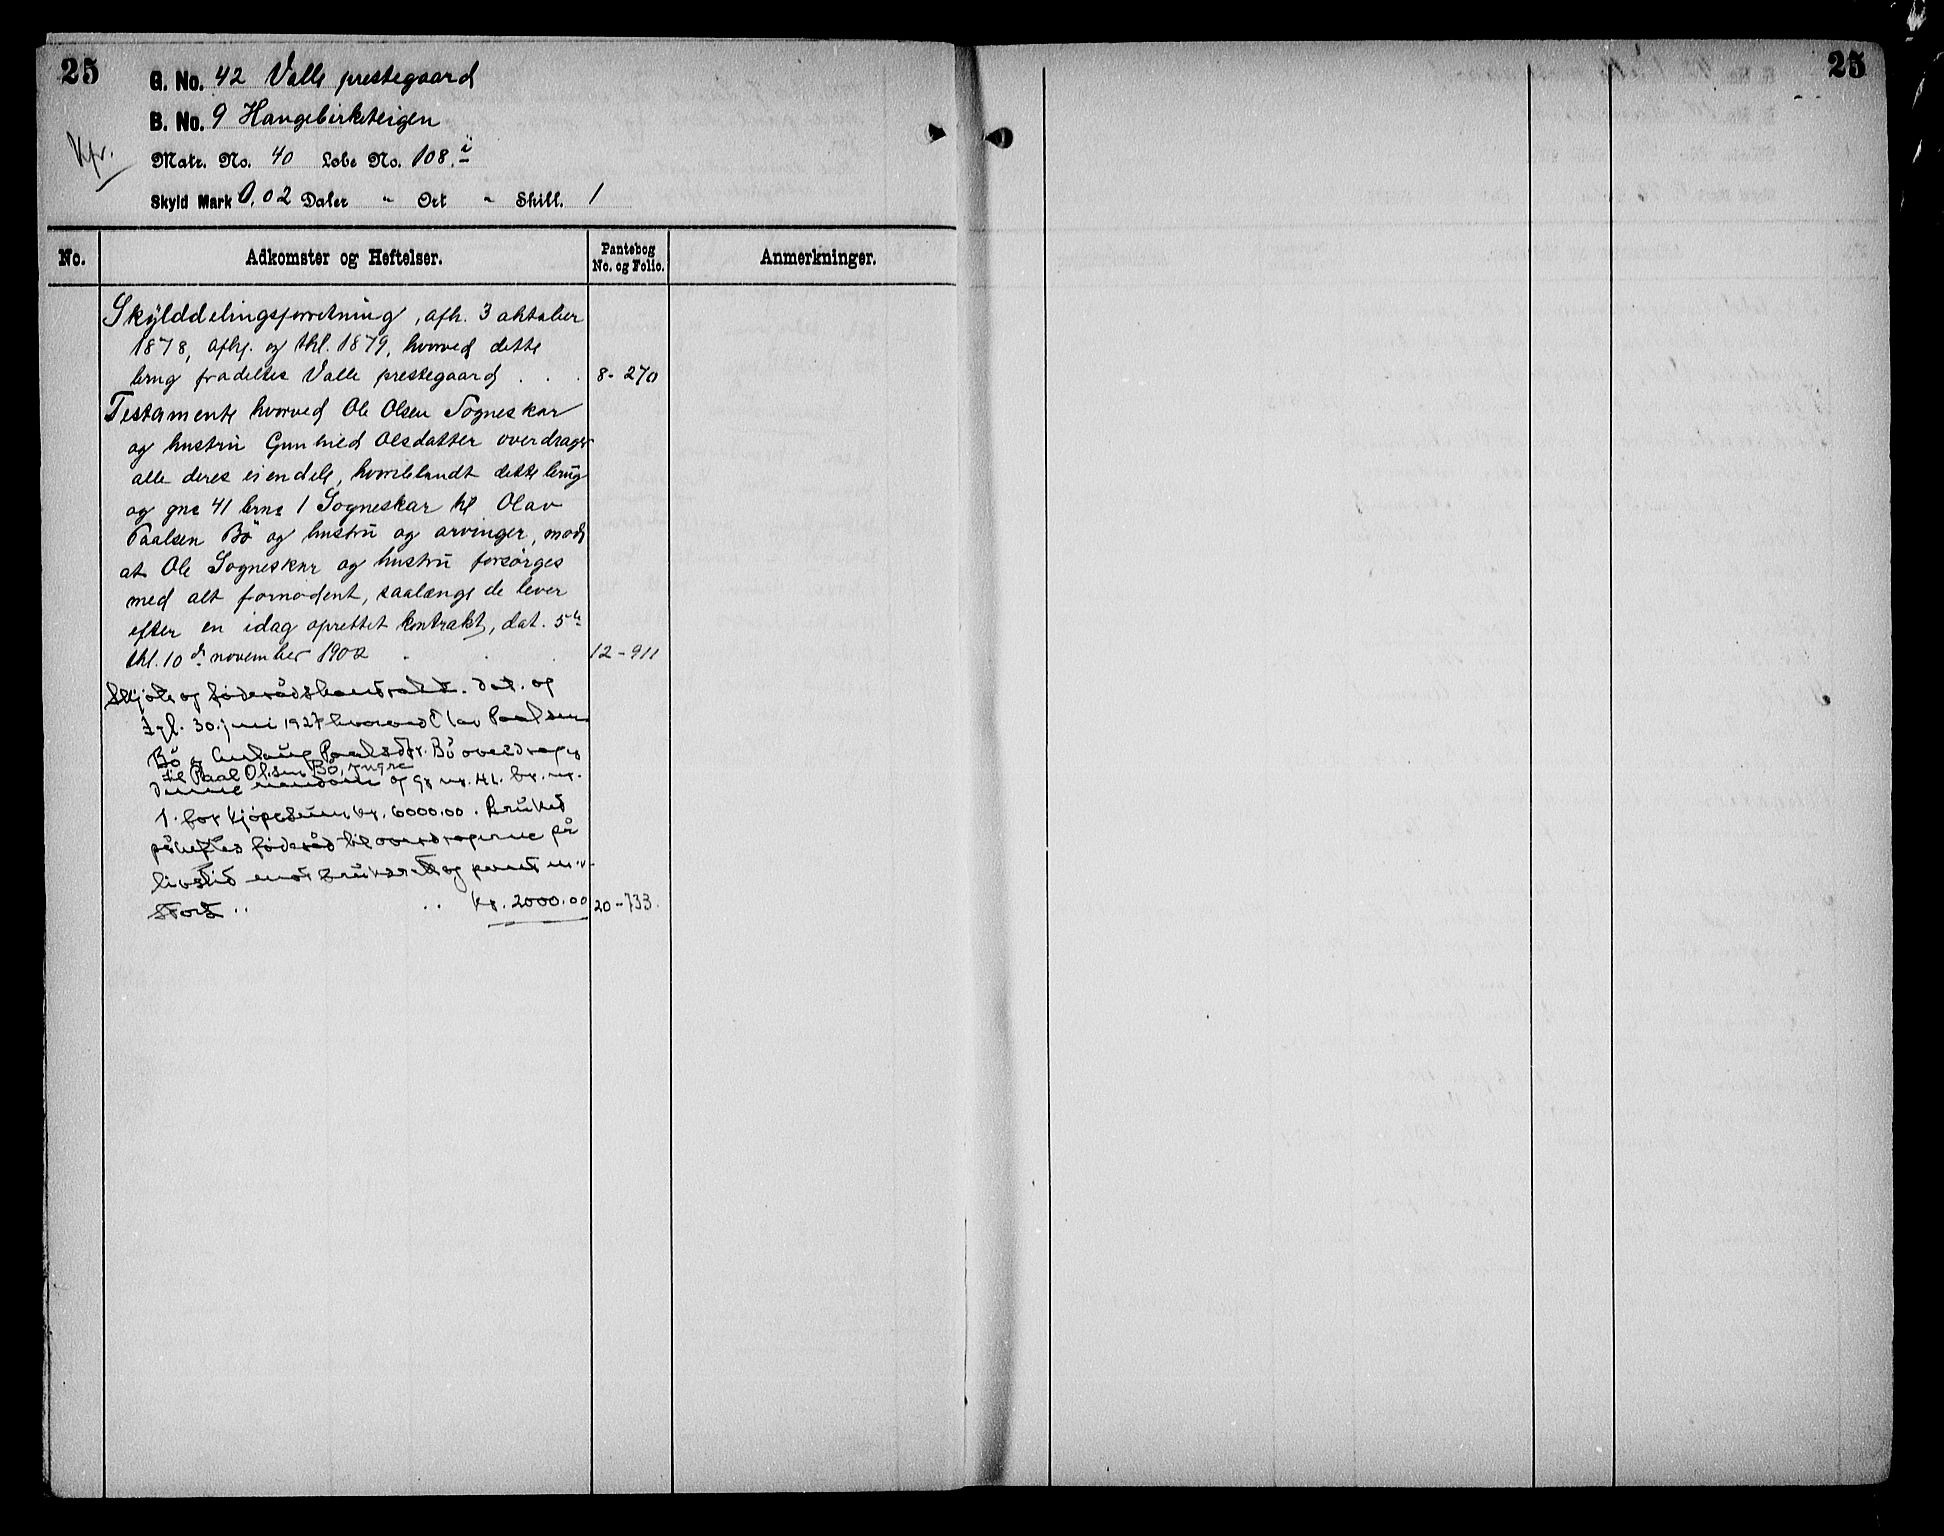 25
25
G. No. 42 Valle prestegaard
B. No. 9 Haugebirketeigen
Kfr.
Matr. No. 40 Løbe No. 108.i
Skyld Mark 0,02 Daler " Ort " Skill. 1
No. Adkomster og Heftelser. Pantebog No. og Folio. Anmerkninger.
Skylddelingsforretning, afh. 3 oktober
1878, afhj. og thl. 1879, hvorved dette
brug fradeltes Valle prestegaard . . . 8-270
Testamente hvorved Ole Olsen Sogneskar
og hustru Gunhild Olsdatter overdrager
alle deres eiendele, hvoriblandt dette brug
og gno 41 brno 1 Sogneskar til Olav
Paalsen Bö og hustru og arvinger, mod
at Ole Sogneskar og hustru forsörges
med alt fornödent, saalænge de lever
efter en idag oprettet kontrakt, dat. 5te
thl. 10de november 1902 . . . 12-911
Skjöte og föderådskontrakt. dat. og
tgl. 30. juni 1927 hvorved Olav Paalsen
Bö og Paalsdtr. Bö overdrager
til Paal Olsen Bö, yngre
denne eiendom og gr. nr. 41. br. nr.
1. for kjöpesum kr. 6000.00. Bruket
påheftes föderåd til overdragerne på
livstid mot bruksrett og pant
stort .. .. kr. 2000.00 20-733.